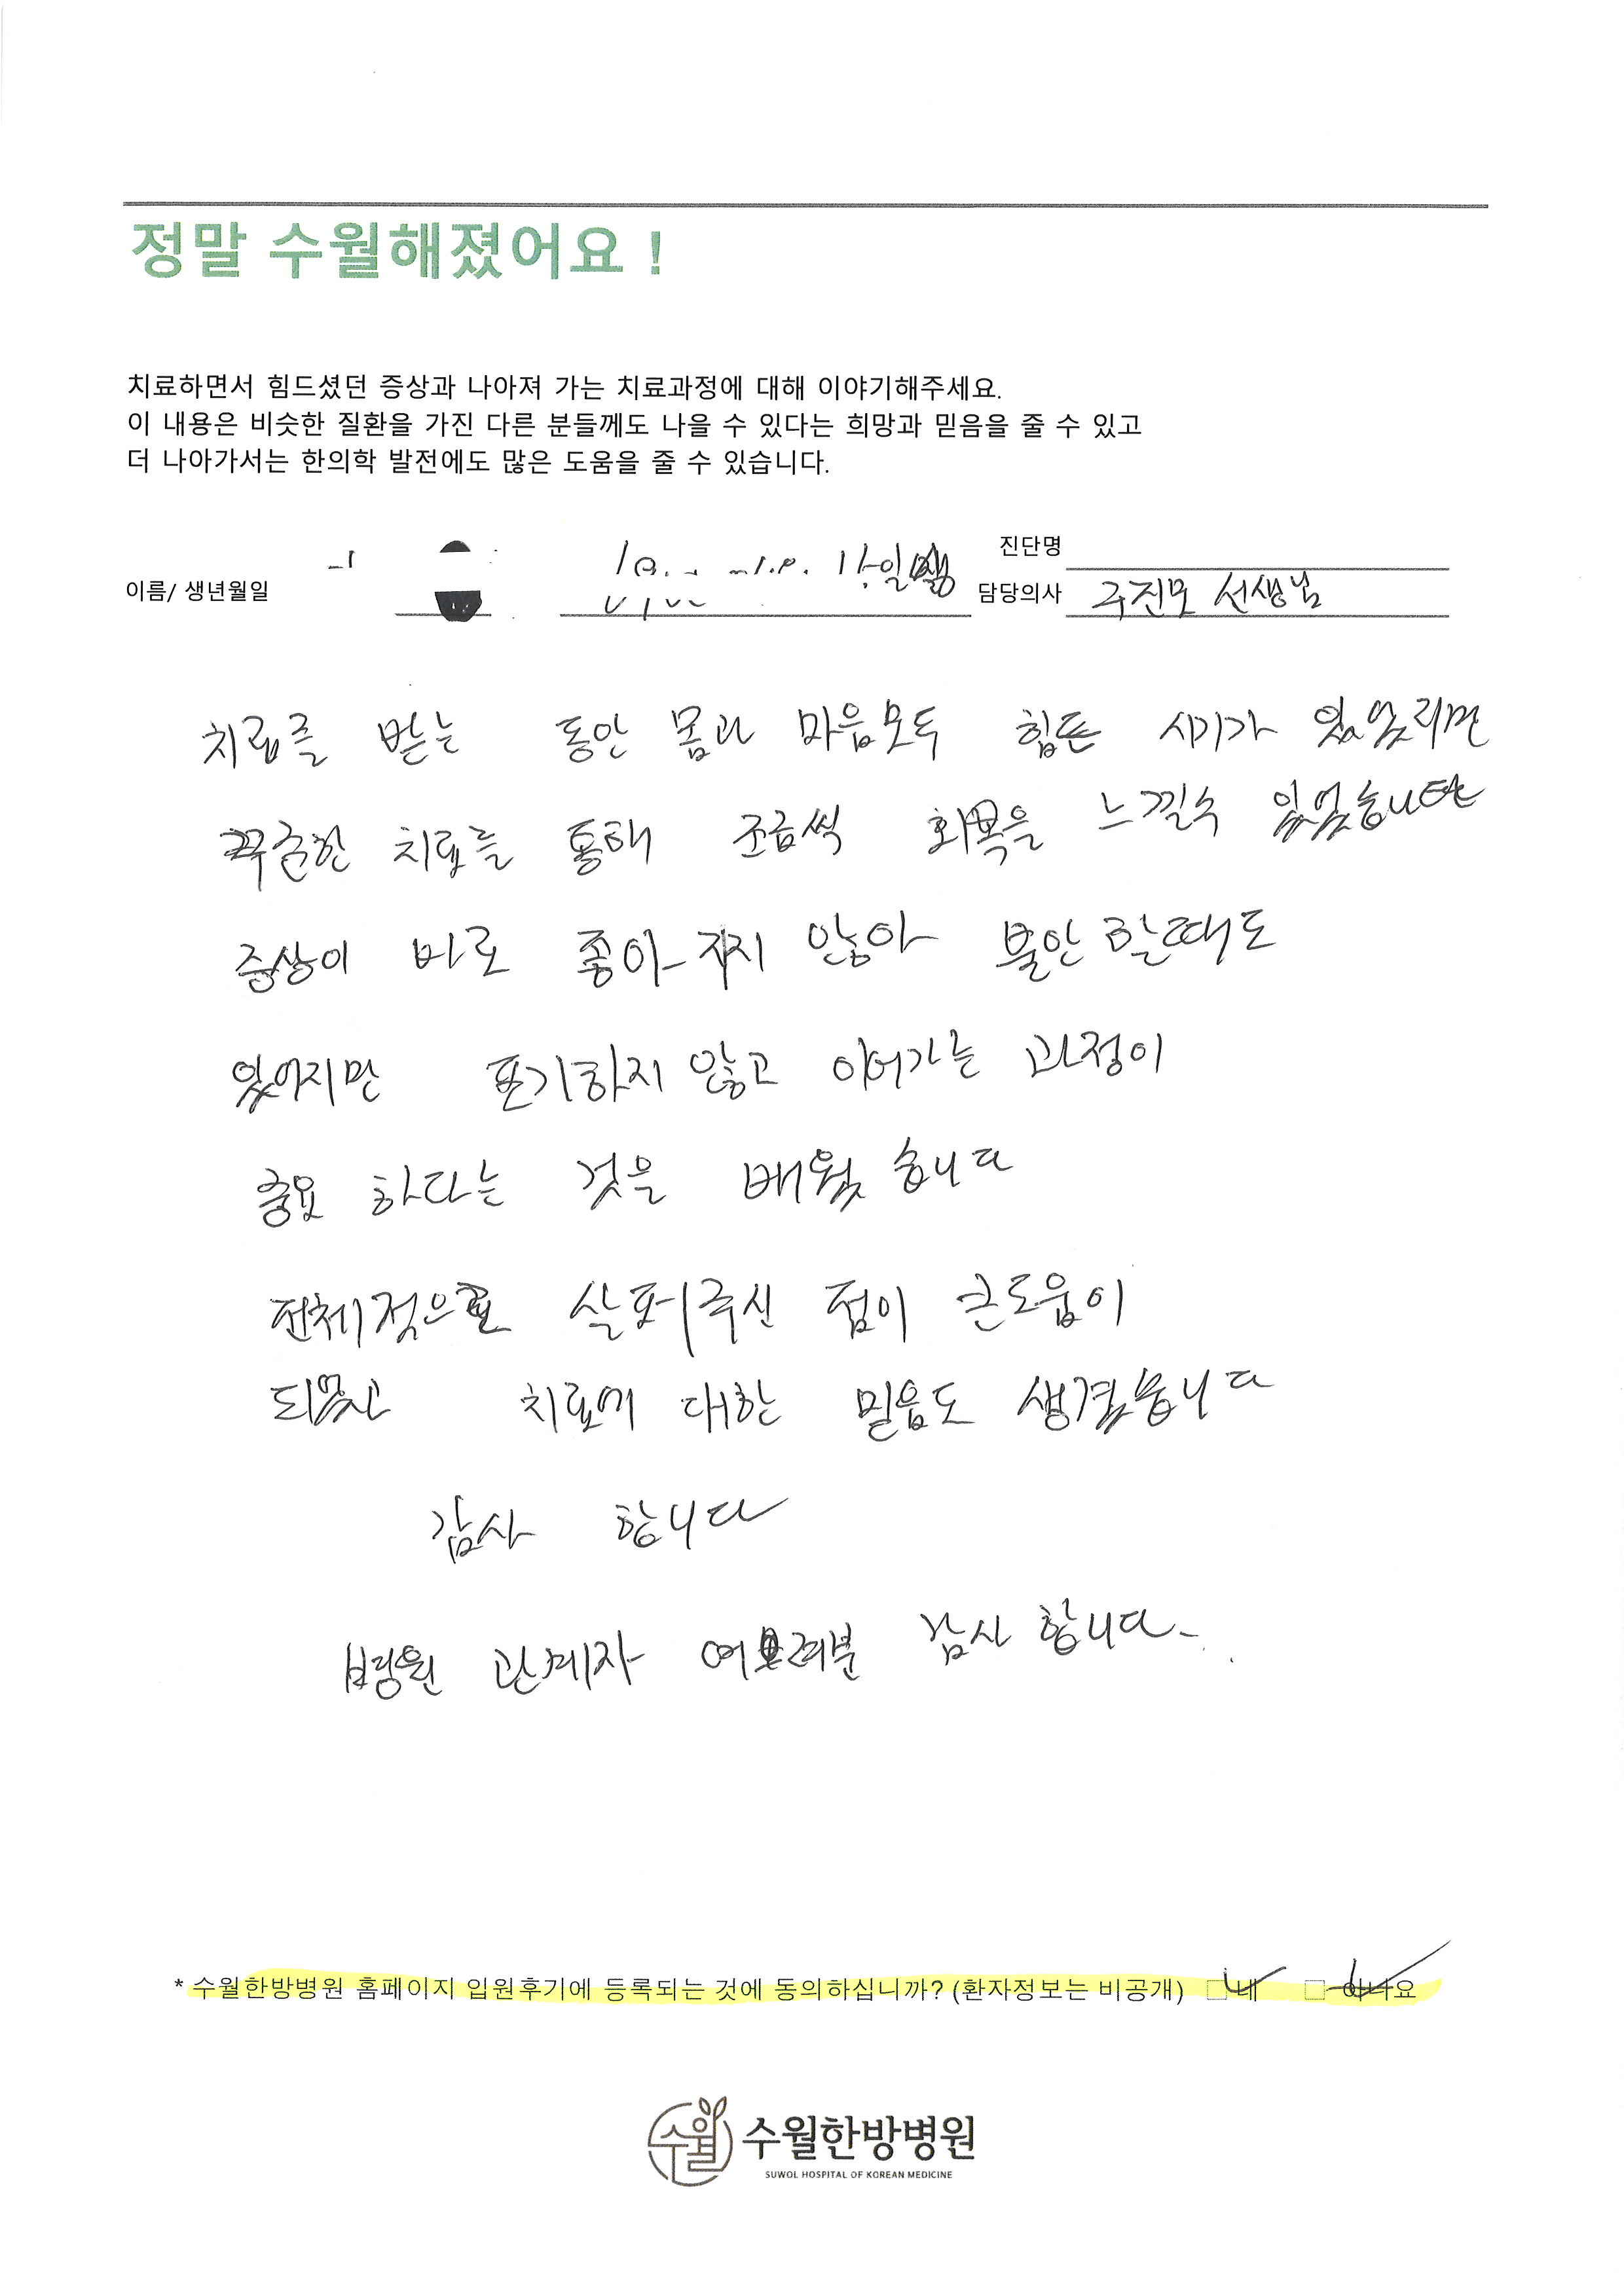 정말 수월해졌어요 !
치료하면서 힘드셨던 증상과 나아져 가는 치료과정에 대해 이야기해주세요.
이 내용은 비슷한 질환을 가진 다른 분들께도 나을 수 있다는 희망과 믿음을 줄 수 있고
더 나아가서는 한의학 발전에도 많은 도움을 줄 수 있습니다.
진단명
이름/ 생년월일
담당의사 구진모 선생님
치료를 받는 동안 몸과 마음모두 힘든 시기가 있었지만
꾸준한 치료를 통해 조금씩 회복을 느낄수 있었습니다
증상이 바로 좋아지지 않아 불안할때도
있어지만 포기하지 않고 이어가는 과정이
중요 하다는 것을 배웠습니다
전체적으로 살펴주신 점이 큰도움이
되었고 치료에 대한 믿음도 생겼습니다
감사 합니다
병원 관계자 여러분 감사 합니다.
* 수월한방병원 홈페이지 입원후기에 등록되는 것에 동의하십니까? (환자정보는 비공개) □ 네 □ 아니요
수월 수월한방병원
SUWOL HOSPITAL OF KOREAN MEDICINE